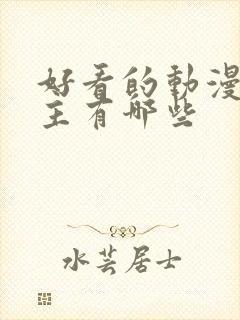 好看的動漫
主有哪些
水芸居士